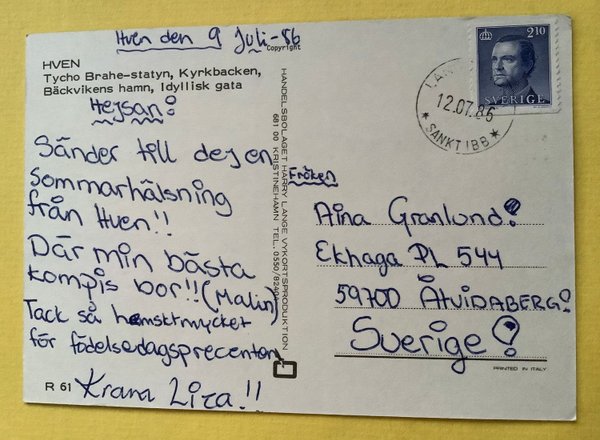 Hven den 9 Juli-86
Copyright
HVEN
Tycho Brahe-statyn, Kyrkbacken,
Bäckvikens hamn, Idyllisk gata
Hejsan!
Sänder till dej en
sommarhälsning
från Hven!!
Där min bästa
kompis bor!! (Malin)
Tack så hemsktmycket
för födelsedagsprecenten
Kram Liza!!
R 61
HANDELSBOLAGET HARRY LANGE VYKORTSPRODUKTION
681 00 KRISTINEHAMN TEL. 0550/82401
2 10
SVERIGE
12.07.86
SANKT IBB
Fröken
Aina Granlund!
Ekhaga PL 544
59700 ÅTVIDABERG!
Sverige!
PRINTED IN ITALY